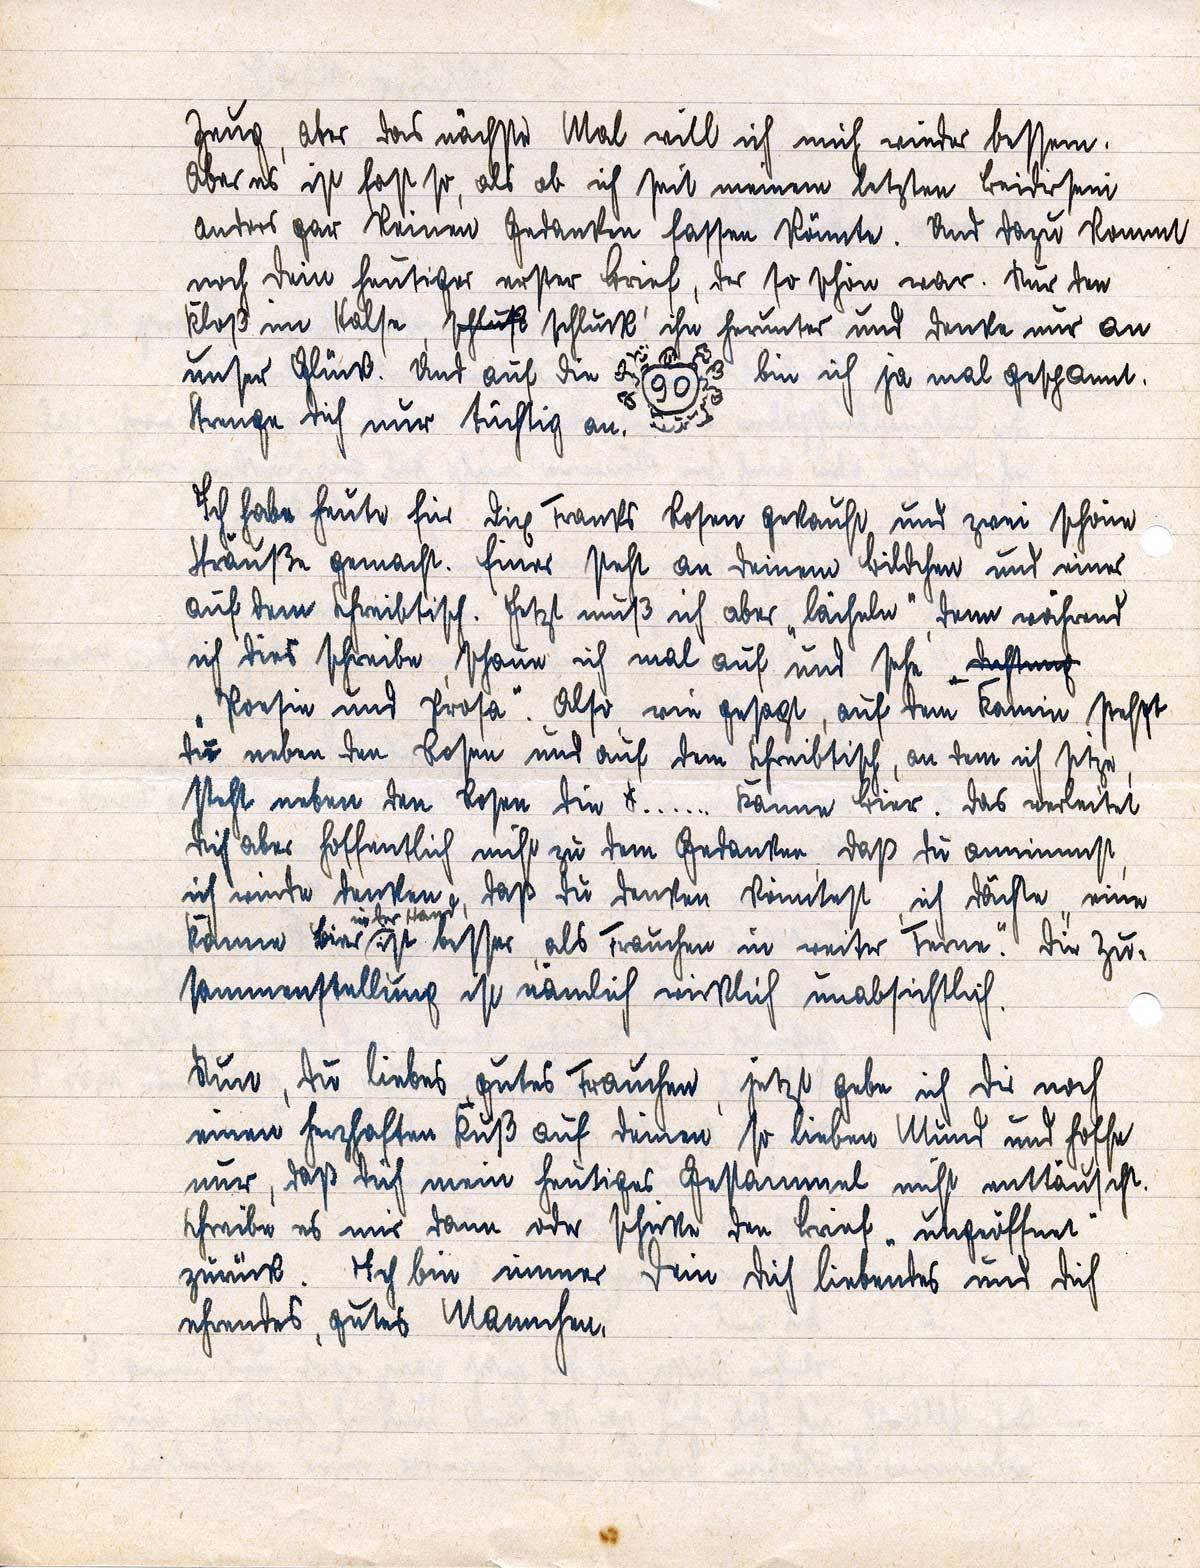 Zeug, aber das nächste Mal will ich mich wieder bessern.
Aber es ist fast so, als ob ich seit meinem letzten Beidirsein
anders gar keinen Gedanken fassen könnte. Und dazu kommt
noch Dein heutiger erster Brief, der so schön war. Nur den
Kloß im Halse, schluck' ihn herunter und denke nur an
unser Glück. Und auf die 90 bin ich ja mal gespannt.
Strenge Dich nur tüchtig an.
Ich habe heute für Dich Franks Rosen gekauft und zwei schöne
Sträuße gemacht. Einer steht an Deinem Bildchen und einer
auf dem Schreibtisch. Jetzt muß ich aber „lächeln", denn während
ich dies schreibe, schaue ich mal auf und sehe
„Poesie und Prosa". Also, wie gesagt, auf dem Kamin stehst
Du neben den Rosen und auf dem Schreibtisch, an dem ich sitze,
steht neben den Rosen die *...... Kanne Bier. Das verleitet
Dich aber hoffentlich nicht zu dem Gedanken, daß Du annimmst,
ich würde denken, daß Du denken könntest, ich dächte „eine
Kanne Bier in der Hand ist besser, als Frauchen in weiter Ferne." Die Zu-
sammenstellung ist nämlich wirklich unabsichtlich.
Nun, Du liebes, gutes Frauchen, jetzt gebe ich Dir noch
einen herzhaften Kuß auf Deinen so lieben Mund und hoffe
nur, daß Dich mein heutiges Gestammel nicht enttäuscht.
Schreibe es mir dann oder schicke den Brief „ungeöffnet"
zurück. Ich bin immer Dein Dich liebendes und Dich
ehrendes, gutes Mannchen.